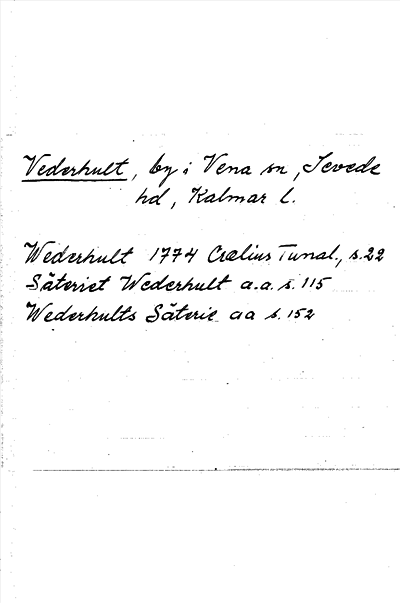 Vederhult, by i Vena sn, Sevede
hd, Kalmar l.
Wederhult 1774 Crælius Tunal., s.22
Säteriet Wederhult a.a. s. 115
Wederhults Säterie aa s. 152